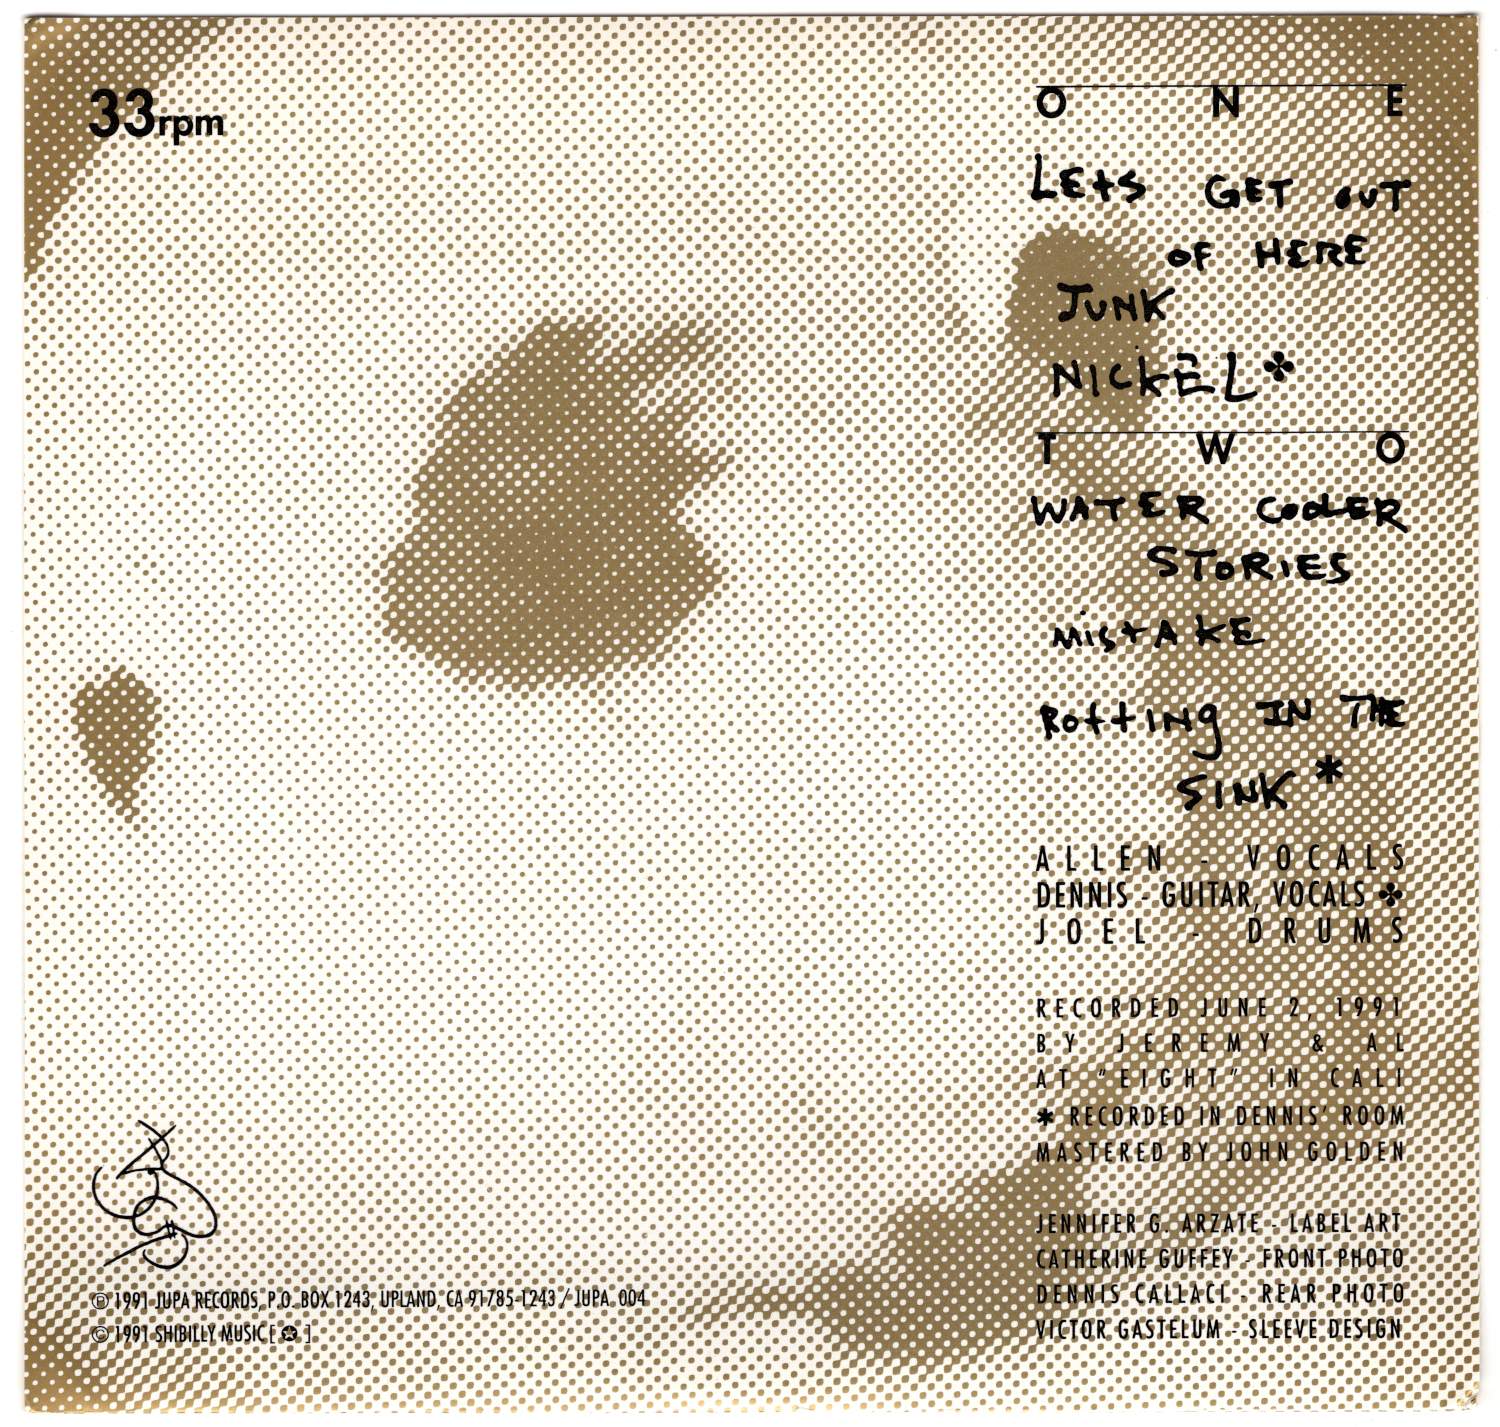 33rpm
O N E
LEtS GET OUT
OF HERE
JUNK
NICKEL✤
T W O
WATER COOLER
STORIES
MIStAKE
ROttING IN THE
SINK *
ALLEN - VOCALS
DENNIS - GUITAR, VOCALS ✤
JOEL - DRUMS
RECORDED JUNE 2, 1991
BY JEREMY & AL
AT "EIGHT" IN CALI
* RECORDED IN DENNIS' ROOM
MASTERED BY JOHN GOLDEN
JENNIFER G. ARZATE - LABEL ART
CATHERINE GUFFEY - FRONT PHOTO
DENNIS CALLACI - REAR PHOTO
VICTOR GASTELUM - SLEEVE DESIGN
℗ 1991 JUPA RECORDS, P.O. BOX 1243, UPLAND, CA 91785-1243 / JUPA 004
© 1991 SHIBILLY MUSIC [ ✪ ]